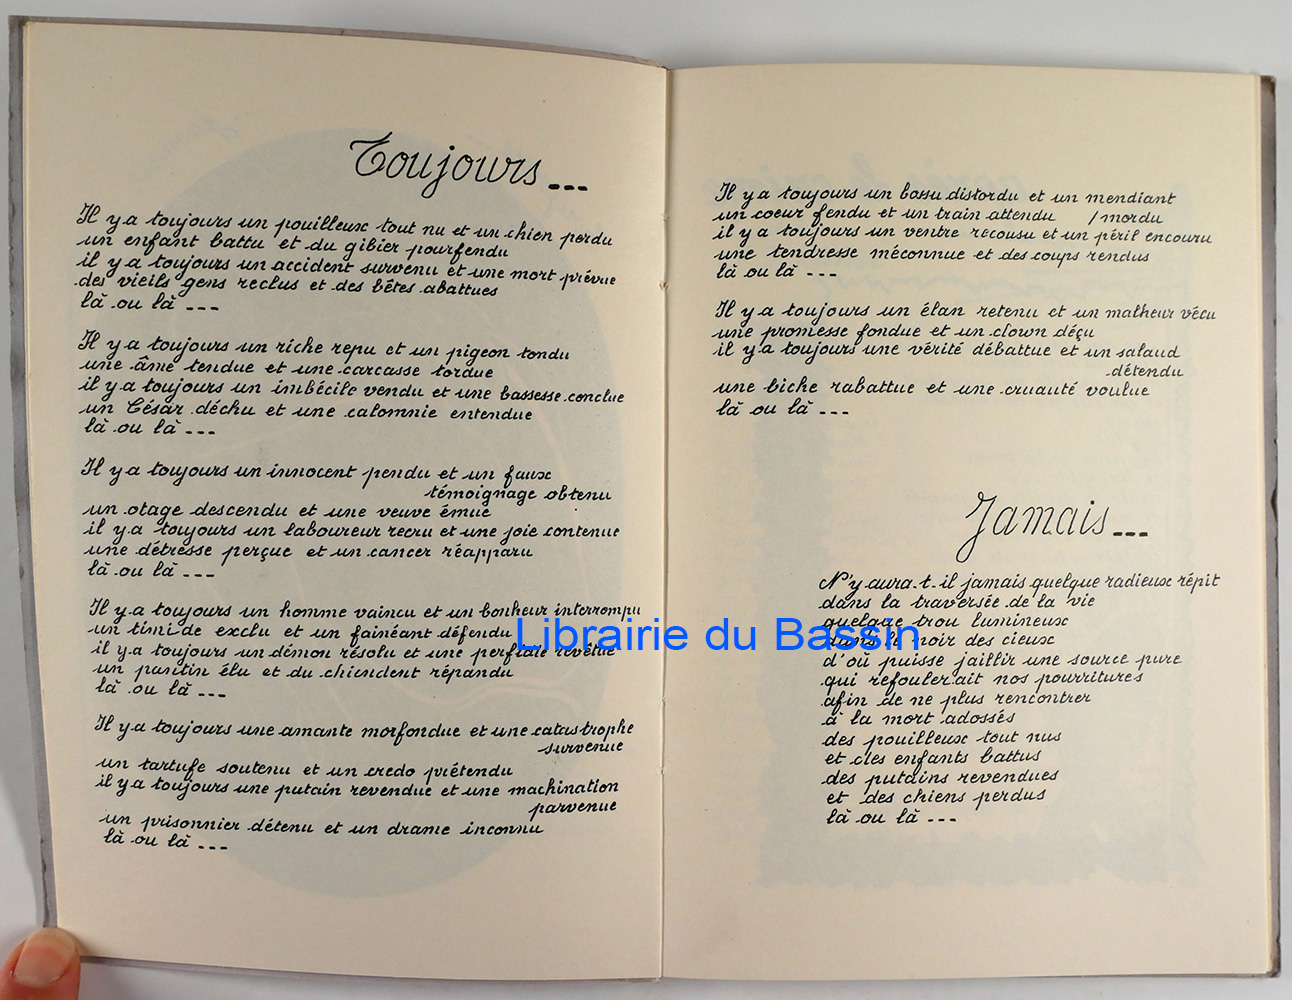 Toujours...
Il y a toujours un pouilleux tout nu et un chien perdu
un enfant battu et du gibier pourfendu
il y a toujours un accident survenu et une mort prévue
des vieils gens reclus et des bêtes abattues
là ou là ...
Il y a toujours un riche repu et un pigeon tondu
une âme tendue et une carcasse tordue
il y a toujours un imbécile vendu et une bassesse conclue
un César déchu et une calomnie entendue
là ou là ...
Il y a toujours un innocent pendu et un faux
témoignage obtenu
un otage descendu et une veuve émue
il y a toujours un laboureur recru et une joie contenue
une détresse perçue et un cancer réapparu
là ou là ...
Il y a toujours un homme vaincu et un bonheur interrompu
un timide exclu et un fainéant défendu
il y a toujours un démon résolu et une perfidie revêtue
un pantin élu et du chiendent répandu
là ou là ...
Il y a toujours une amante morfondue et une catastrophe
survenue
un tartufe soutenu et un credo prétendu
il y a toujours une putain revendue et une machination
parvenue
un prisonnier détenu et un drame inconnu
là ou là ...
Il y a toujours un bossu distordu et un mendiant
un coeur fendu et un train attendu /mordu
il y a toujours un ventre recousu et un péril encouru
une tendresse méconnue et des coups rendus
là ou là ...
Il y a toujours un élan retenu et un malheur vécu
une promesse fondue et un clown déçu
il y a toujours une vérité débattue et un salaud
détendu
une biche rabattue et une cruauté voulue
là ou là ...
Jamais...
N'y aura-t-il jamais quelque radieux répit
dans la traversée de la vie
quelque trou lumineux
dans le noir des cieux
d'où puisse jaillir une source pure
qui refoulerait nos pourritures
afin de ne plus rencontrer
à la mort adossés
des pouilleux tout nus
et des enfants battus
des putains revendues
et des chiens perdus
là ou là ...
Librairie du Bassin